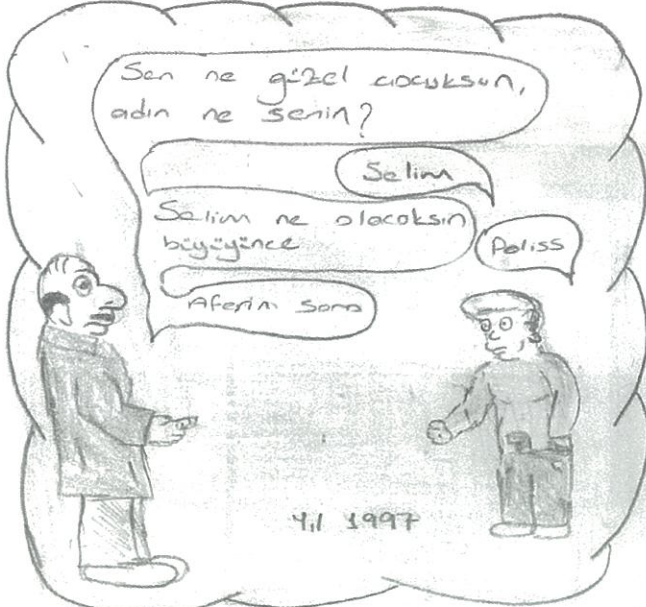 Sen ne güzel çocuksun,
adın ne senin?
Selim
Selim ne olacaksın
büyüyünce
Poliss
Aferim sana
Yıl 1997